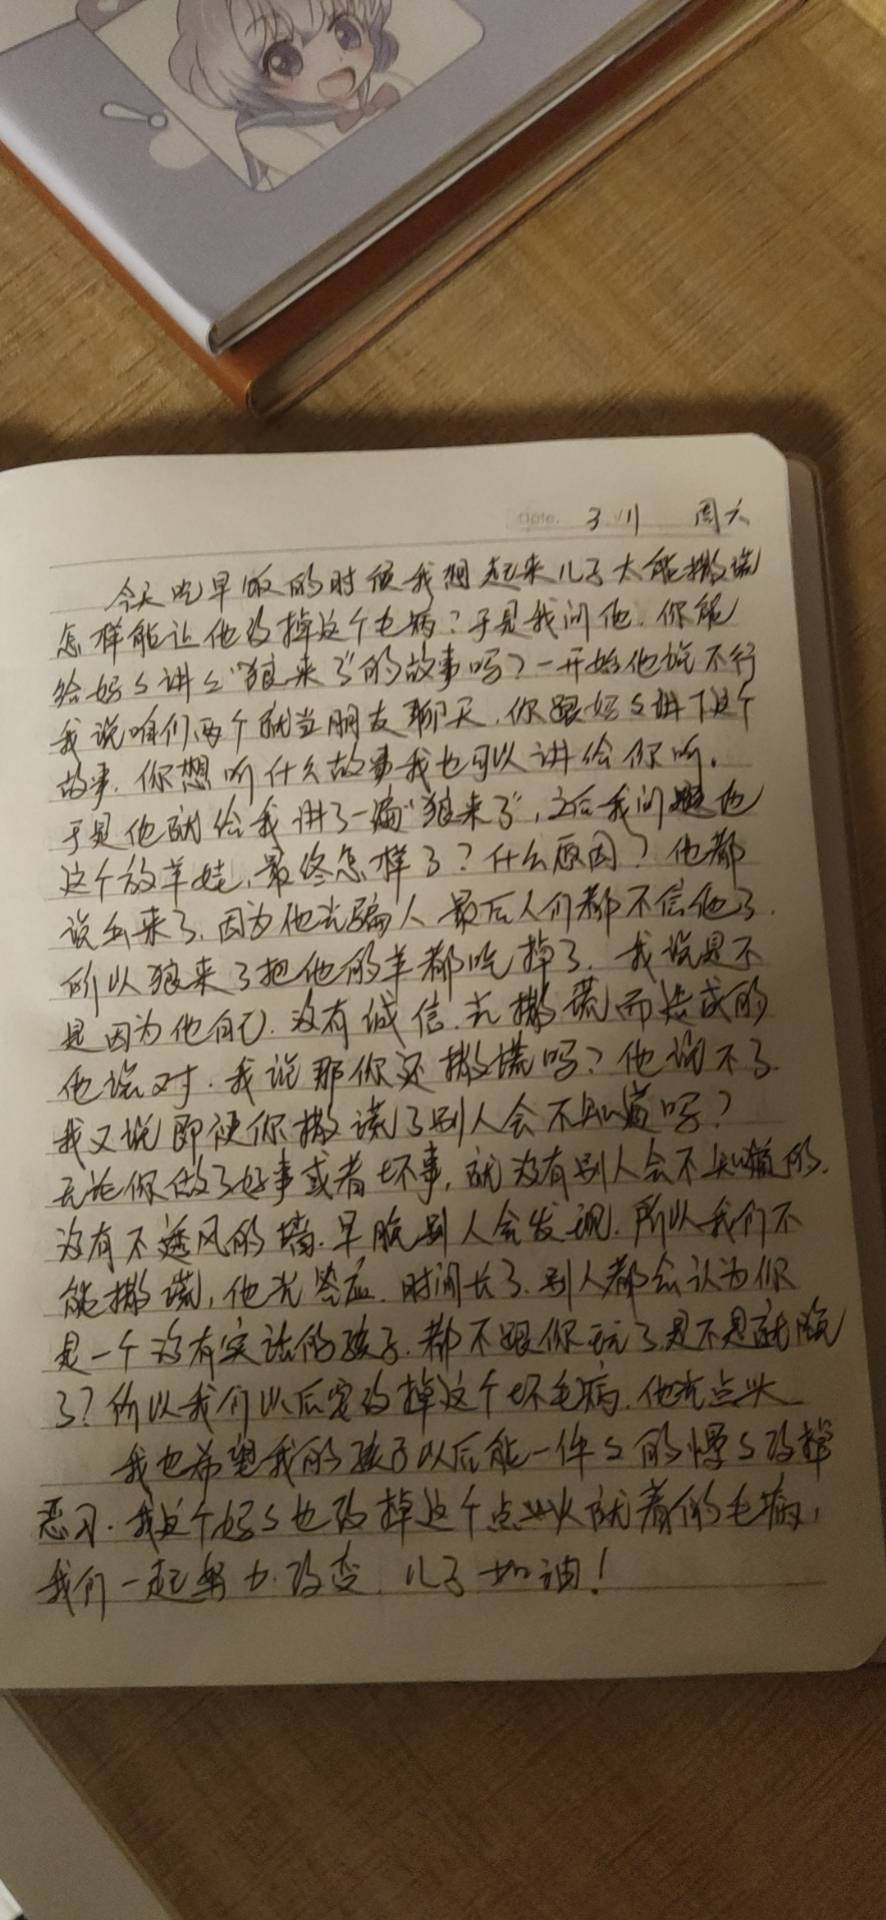 Date. 3.11 周六
今天吃早饭的时候我想起来儿子太能撒谎
怎样能让他改掉这个毛病?于是我问他.你能
给妈々讲々"狼来了"的故事吗?一开始他说不行
我说咱们两个就当朋友聊天.你跟妈々讲下这个
故事.你想听什么故事我也可以讲给你听.
于是他就给我讲了一遍"狼来了",之后我问他
这个放羊娃,最终怎样了?什么原因?他都
说出来了.因为他光骗人最后人们都不信他了.
所以狼来了把他的羊都吃掉了.我说是不
是因为他自己.没有诚信.光撒谎而造成的
他说对.我说那你还撒谎吗?他说不了.
我又说即便你撒谎了别人会不知道吗?
无论你做了好事或者坏事,就没有别人会不知道的.
没有不透风的墙.早晚别人会发现.所以我们不
能撒谎,他光答应.时间长了.别人都会认为你
是一个没有实话的孩子.都不跟你玩了是不是就晚
了?所以我们以后要改掉这个坏毛病.他光点头
我也希望我的孩子以后能一件々的慢々改掉
恶习.我这个妈々也改掉这个点火就着的毛病,
我们一起努力.改变.儿子加油!